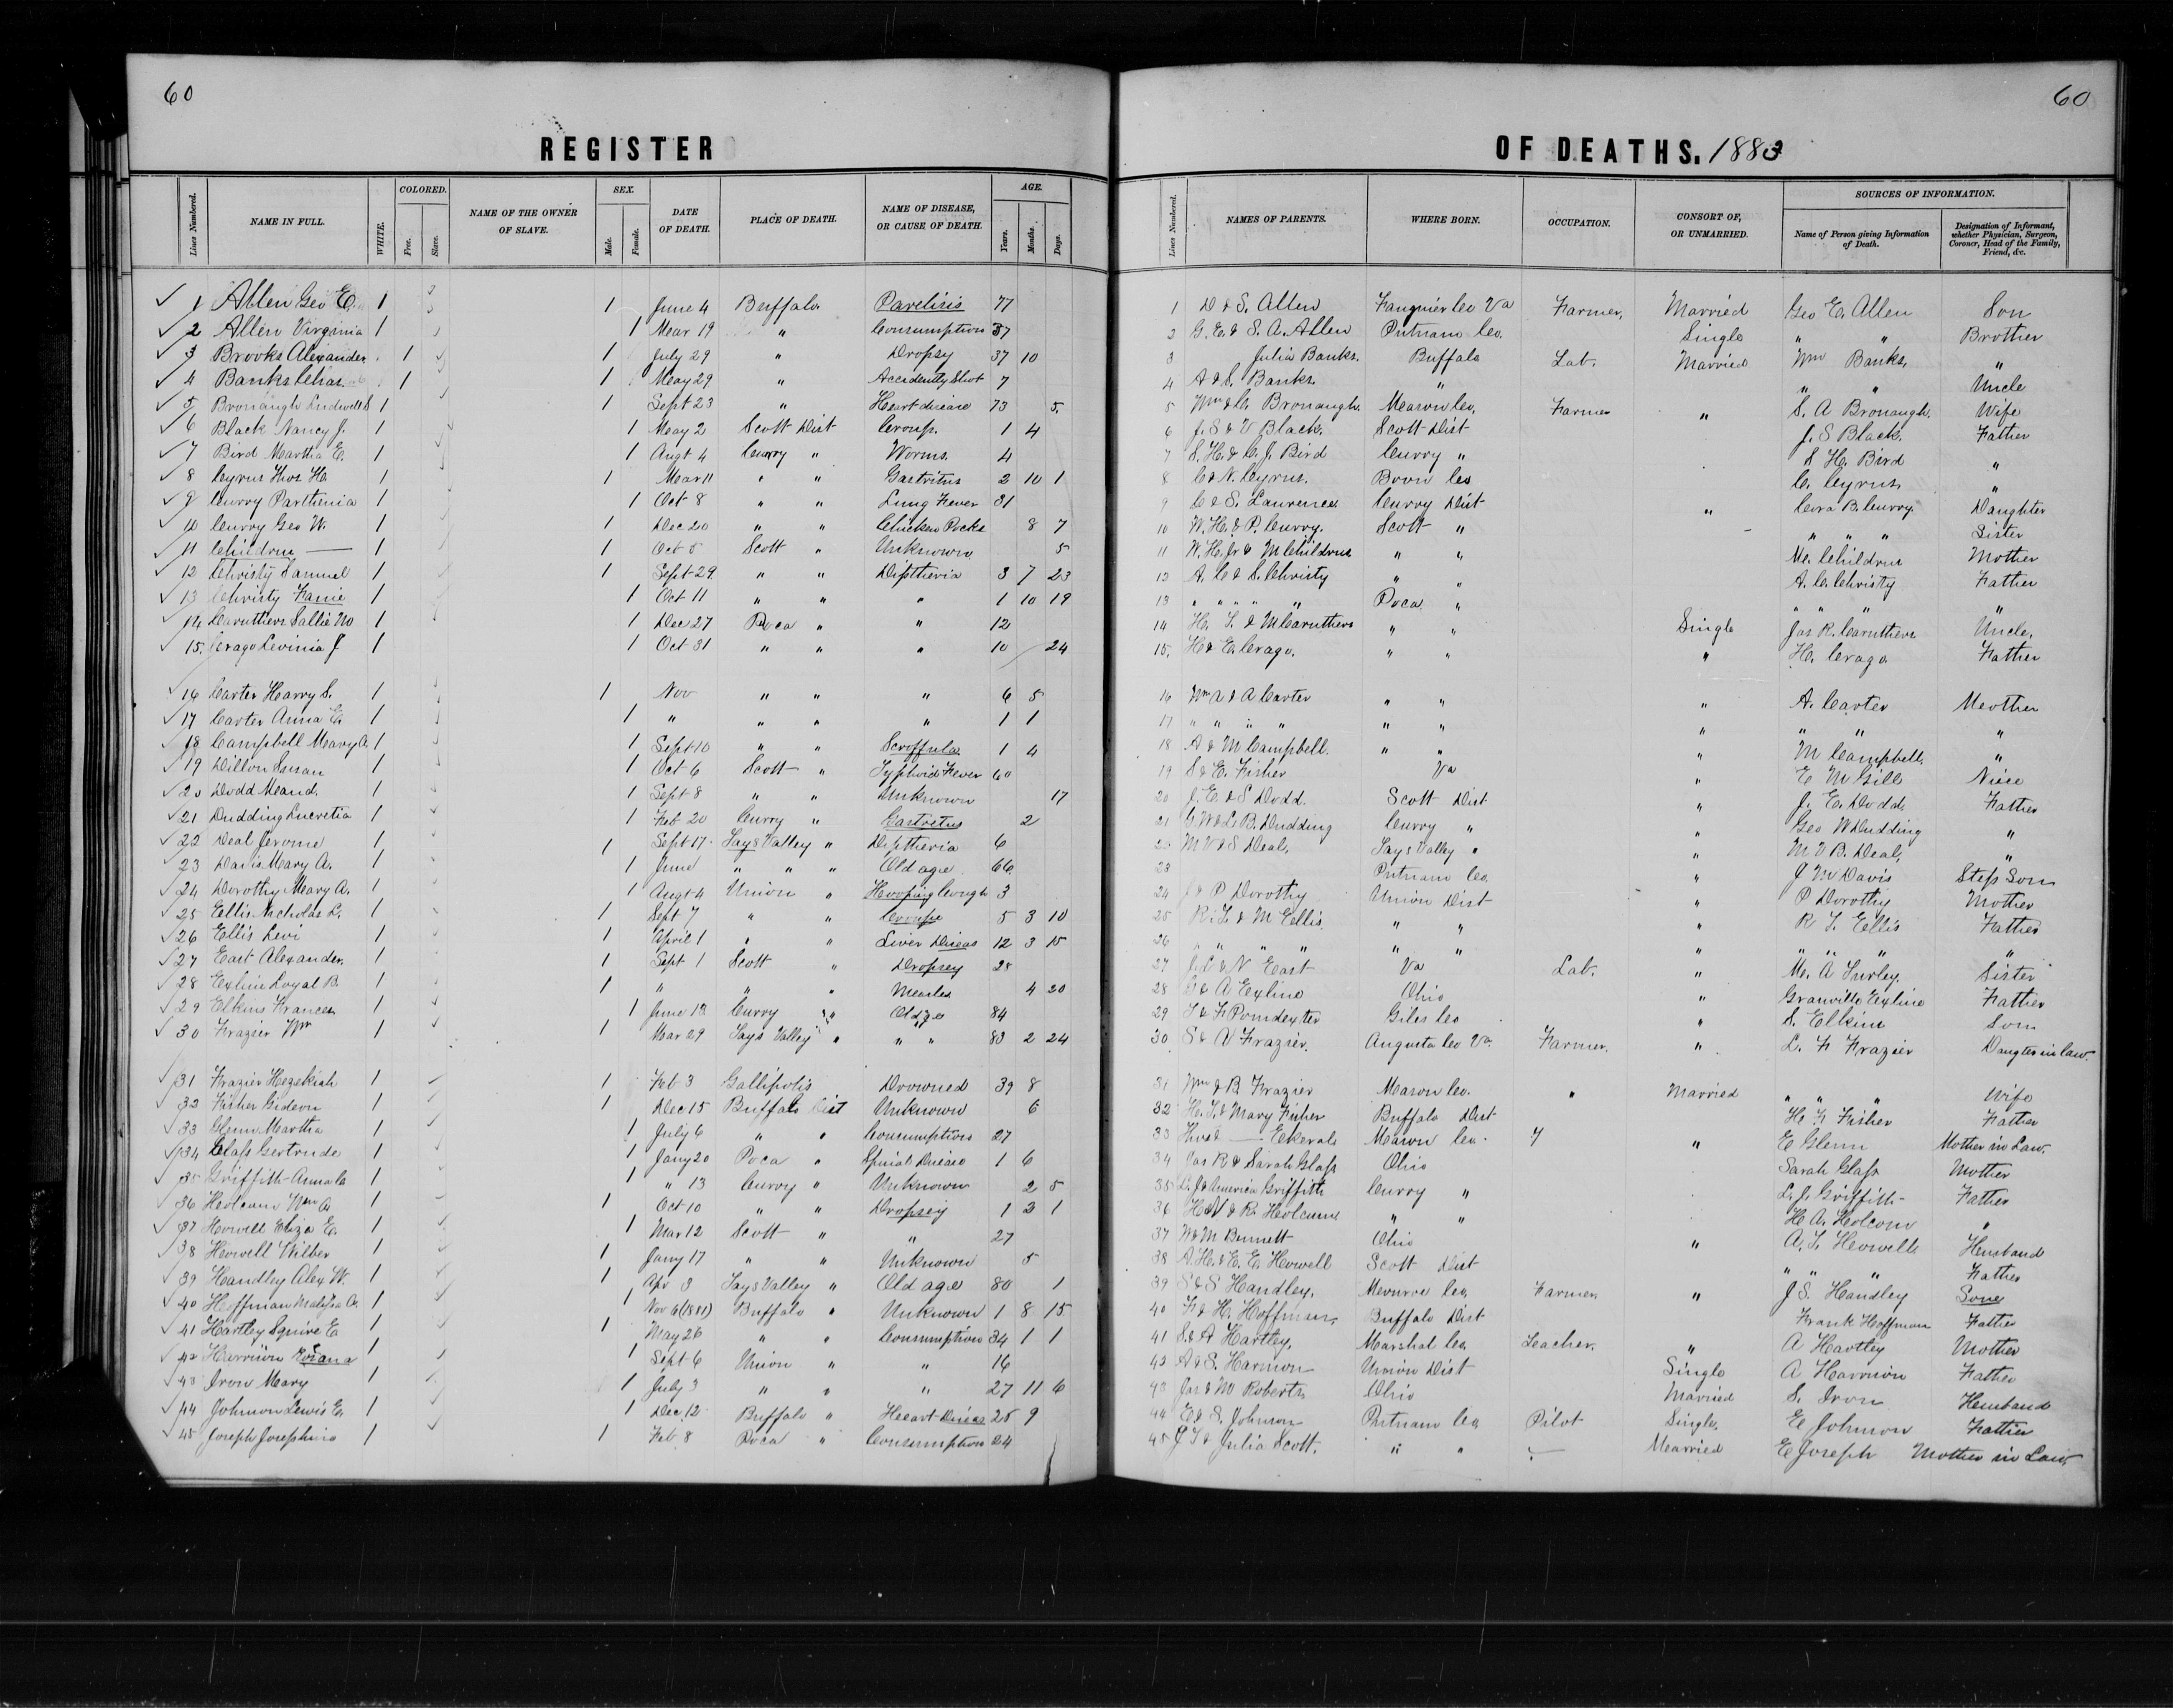 60
60
REGISTER OF DEATHS. 1883
Lines Numbered. NAME IN FULL. WHITE. COLORED. Free. Slave. NAME OF THE OWNER OF SLAVE. SEX. Male. Female. DATE OF DEATH. PLACE OF DEATH. NAME OF DISEASE, OR CAUSE OF DEATH. AGE. Years. Months. Days. Lines Numbered. NAMES OF PARENTS. WHERE BORN. OCCUPATION. CONSORT OF, OR UNMARRIED. SOURCES OF INFORMATION. Name of Person giving Information of Death. Designation of Informant, whether Physician, Surgeon, Coroner, Head of the Family, Friend, &c.
1 Allen Geo E. 1 1 June 4 Buffalo Parelisis 77 1 D & S. Allen Fauquier Co Va Farmer, Married Geo E. Allen Son
2 Allen Virginia 1 1 Mar 19 " Consumption 37 2 G. E. & S. A. Allen Putnam Co. Single " " Brother
3 Brooks Alexander 1 1 July 29 " Dropsy 37 10 3 Julia Banks. Buffalo Lab. Married Wm Banks, "
4 Banks Chas. 1 1 May 29 " Accidently Shot 7 4 A & S. Banks. " " " Uncle
5 Bronaugh Ludwell S 1 1 Sept 23 " Heart disease 73 5. 5 Wm & C. Bronaugh. Mason Co. Farmer " S. A Bronaugh. Wife
6 Black Nancy J. 1 1 May 2 Scott Dist Croup. 1 4 6 J. S & V Black. Scott Dist J. S Black. Father
7 Bird Martha E. 1 1 Augt 4 Curry " Worms. 4 7 S. H. & C. J. Bird Curry " S H. Bird "
8 Cyrus Thos H. 1 1 Mar 11 " " Gastritus 2 10 1 8 C & N. Cyrus. Boon Co C. Cyrus "
9 Curry Parthenia 1 1 Oct 8 " " Lung Fever 31 9 C & S. Laurence Curry Dist " Cora B. Curry. Daughter
10 Curry Geo W. 1 1 Dec 20 " " Chicken Pocks 8 7 10 W. H. & P. Curry. Scott " " " " Sister
11 Childrus — 1 1 Oct 5 Scott " Unknown 5 11 W. H. Jr & M Childrus " " M. Childrus Mother
12 Christy Samuel 1 1 Sept 29 " " Diptheria 3 7 23 12 A. C & S. Christy " " A. C. Christy Father
13 Christy Fanie 1 1 Oct 11 " " " 1 10 19 13 " " " " " Poca " " " " "
14 Caruthers Sallie M 1 1 Dec 27 Poca " " 12 14 H. T. & M Caruthers " " Single Jas R. Caruthers Uncle,
15. Crago Levinia J 1 1 Oct 31 " " " 10 24 15. H & E. Crago. " " " H. Crago Father
16 Carter Harry S. 1 1 Nov " " " 6 5 16 Wm A & A Carter " " " A. Carter Mother
17 Carter Anna E. 1 1 " " " " 1 1 17 " " " " " " " " " "
18 Campbell Mary A 1 1 Sept 10 " " Scroffula 1 4 18 A & M Campbell. " " " M Campbell, "
19 Dillon Susan 1 1 Oct 6 Scott " Typhoid Fever 60 19 S & E. Fisher Va " E M Gill Niece
20 Dodd Maud. 1 1 Sept 8 " " Unknown 17 20 J. E. & S Dodd. Scott Dist " J. E. Dodd Father
21 Dudding Lucretia 1 1 Feb 20 Curry " Gastretus 2 21 G. W & L. B. Dudding Curry " " Geo W Dudding "
22 Deal Jerome 1 1 Sept 17 Tays Valley " Diptheria 6 22 M V & S Deal, Tays Valley " " M. V B. Deal, "
23 Davis Mary A. 1 1 June " " " Old age 66 23 Putnam Co. " J M Davis Step Son
24 Dorothy Mary A. 1 1 Augt 4 Union " Hooping Cough 3 24 J & P Dorothy Union Dist " P Dorothy Mother
25 Ellis Nicholas L. 1 1 Sept 7 " " Croupe 5 3 10 25 R. T. & M Ellis. " " " R T. Ellis Father
26 Ellis Levi 1 1 April 1 " " Liver Diseas 12 3 15 26 " " " " " " " " " " "
27 East Alexander. 1 1 Sept 1 Scott " Dropsey 28 27 J. L & N East Va Lab. " M. A Turley. Sister
28 Exline Loyal B. 1 1 " " " Measles 4 20 28 G & A Exline Ohio " Granville Exline Father
29 Elkins Frances 1 1 June 13 Curry " Old age 84 29 T & F Pomdexter Giles Co " S. Elkins Son
30 Frazier Wm 1 1 Mar 29 Tays Valley " " " 83 2 24 30 S & V Frazier. Augusta Co Va. Farmer. " L. F Frazier Daugter in law.
31 Frazier Hezekiah 1 1 Feb 3 Gallipolis Drowned 39 8 31 Wm & B. Frazier Mason Co. " Married " " " Wife
32 Fisher Gideon 1 1 Dec 15 Buffalo Dist Unknown 6 32 H. F. & Mary Fisher Buffalo Dist H. F. Fisher Father
33 Glenn Martha 1 1 July 6 " " Consumption 27 33 — Eckerals Mason Co. " E Glenn Mother in Law.
34 Glass Gertrude 1 1 Jany 20 Poca " Spinal Disease 1 6 34 Jas R & Sarah Glass Ohio Sarah Glass Mother
35 Griffith Anna C 1 1 " 13 Curry " Unknown 2 5 35 L. J. & America Griffith Curry " L. J. Griffith Father
36 Holcum Wm A. 1 1 Oct 10 " " Dropsey 1 3 1 36 H. A & R. Holcume " " H. A. Holcom "
37 Howell Eliza E. 1 1 Mar 12 Scott " " 27 37 W & M Bennett Ohio " A. T. Howell Husband
38 Howell Wilber 1 1 Jany 17 " " Unknown 5 38 A. H. & E. E. Howell Scott Dist " " " Father
39 Handley Alex W. 1 1 Apr 3 Tays Valley " Old age 80 1 39 S & S Handley. Monroe Co. Farmer. " J S. Handley Sone
40 Hoffman Malissa A. 1 1 Nov 6 (1881) Buffalo " Unknown 1 8 15 40 F & H. Hoffman, Buffalo Dist Frank Hoffman Father
41 Hartley Squire E 1 1 May 26 " " Consumption 34 1 1 41 S. & A Hartley, Marshal Co, Teacher. " A Hartley Mother
42 Harmon Rosana 1 1 Sept 6 Union " " 16 42 A & S. Harmon Union Dist Single A Harmon Father
43 Iron Mary 1 1 July 3 " " " 27 11 6 43 Jas & M Roberts Ohio Married S. Iron Husband
44 Johnson Lewis E. 1 1 Dec 12 Buffalo " Heart Diseas 25 9 44 E & S. Johnson Putnam Co Pilot Single, E Johnson Father
45 Joseph Josephine 1 1 Feb 8 Poca " Consumption 24 45 J T & Julia Scott. " " Married E Joseph Mother in Law